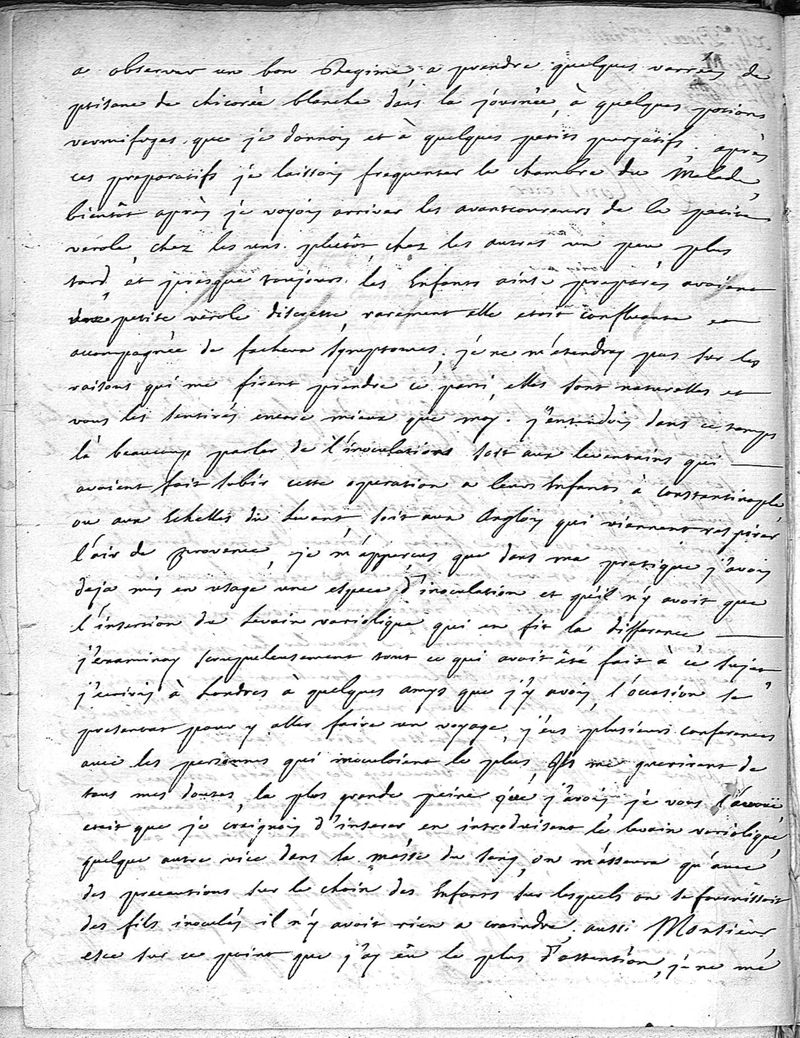 a observer un bon Regime, a prendre quelques verrées de
ptisane de chicorée blanche dans la journée, à quelques potions
vermifuges que je donnois et à quelques petits purgatifs. après
ces preparatifs je laissois frequenter la chambre du Malade,
bientôt après je voyois arriver les avantcoureurs de la petite
verole, chez les uns plutôt chez les autres un peu plus
tard, et presque toujours les Enfants ainsi preparés avoient
une petite verole discrette, rarement elle etoit confluente et
accompagnée de facheux symptomes, je ne m'étendray pas sur les
raisons qui me firent prendre ce parti, elles sont naturelles et
vous les sentirés encore mieux que moy. j'entendois dans ce temps
là beaucoup parler de l'inoculation soit aux leventains qui
avoient fait subir cette operation a leurs Enfants à constantinople
ou aux Echelles du Levant soit aux Anglois qui viennent respirer
l'air de provence, je m'apperçus que dans ma pratique j'avois
deja mis en usage une espece d'inoculation et qu'il n'y avoit que
l'insertion du Levain variolique qui en fit la difference
j'examinay scrupuleusement tout ce qui avoit été fait à ce sujet
j'ecrivis à Londres à quelques amys que j'y avois, l'ocasion se
presentat pour y aller faire un voyage, j'eus plusieurs conferences
avec les personnes qui inoculoient le plus, Ils me guerirent de
tous mes doutes, la plus grande peine que j'avois je vous l'avoüe
etoit que je craignois d'inserer en introduisant le levain variolique
quelque autre vice dans la masse du sang, on m'assura qu'avec
des precautions sur le choix des Enfants sur lesquels on se fournissoit
des fils inoculés il n'y avoit rien a craindre, aussi Monsieur
esce sur ce point que j'ay eü le plus d'attention, je ne me